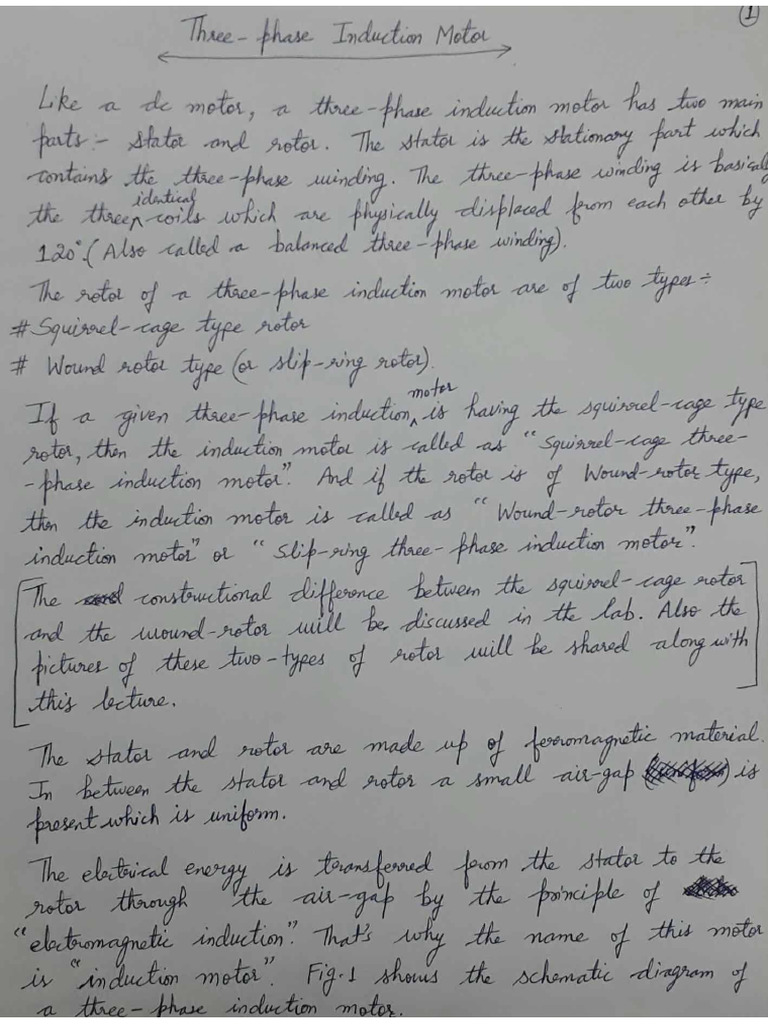 1
Three-phase Induction Motor
Like a dc motor, a three-phase induction motor has two main
parts:- stator and rotor. The stator is the stationary part which
contains the three-phase winding. The three-phase winding is basically
the three identical coils which are physically displaced from each other by
120°. (Also called a balanced three-phase winding).
The rotor of a three-phase induction motor are of two types÷
# Squirrel-cage type rotor
# Wound rotor type (or slip-ring rotor).
If a given three-phase induction motor is having the squirrel-cage type
rotor, then the induction motor is called as "Squirrel-cage three-
-phase induction motor". And if the rotor is of Wound-rotor type,
then the induction motor is called as "Wound-rotor three-phase
induction motor" or "Slip-ring three-phase induction motor".
[The constructional difference between the squirrel-cage rotor
and the wound-rotor will be discussed in the lab. Also the
pictures of these two-types of rotor will be shared along with
this lecture.]
The stator and rotor are made up of ferromagnetic material.
In between the stator and rotor a small air-gap is
present which is uniform.
The electrical energy is transferred from the stator to the
rotor through the air-gap by the principle of
"electromagnetic induction". That's why the name of this motor
is "induction motor". Fig.1 shows the schematic diagram of
a three-phase induction motor.